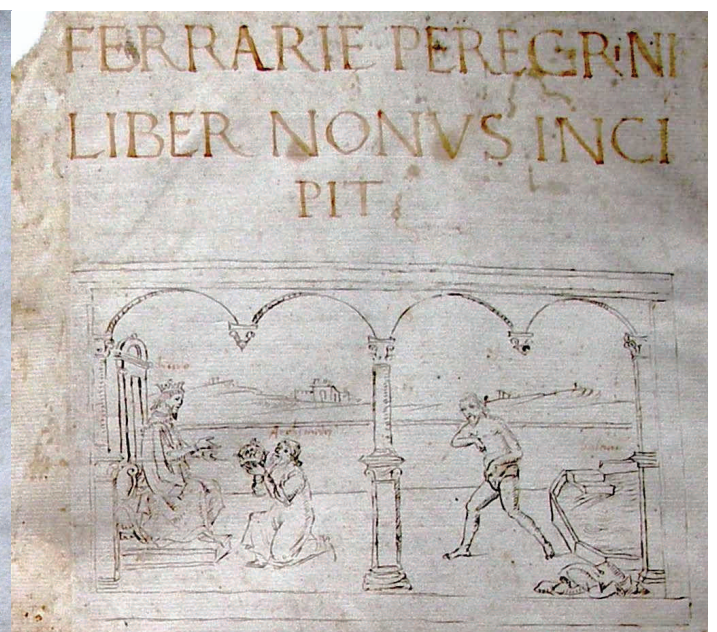 FERRARIE PEREGRINI
LIBER NONVS INCI
PIT